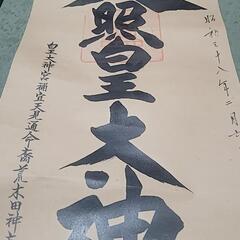 昭和三十八年二月
照皇大神
皇大神宮禰宜天見通命裔荒木田神